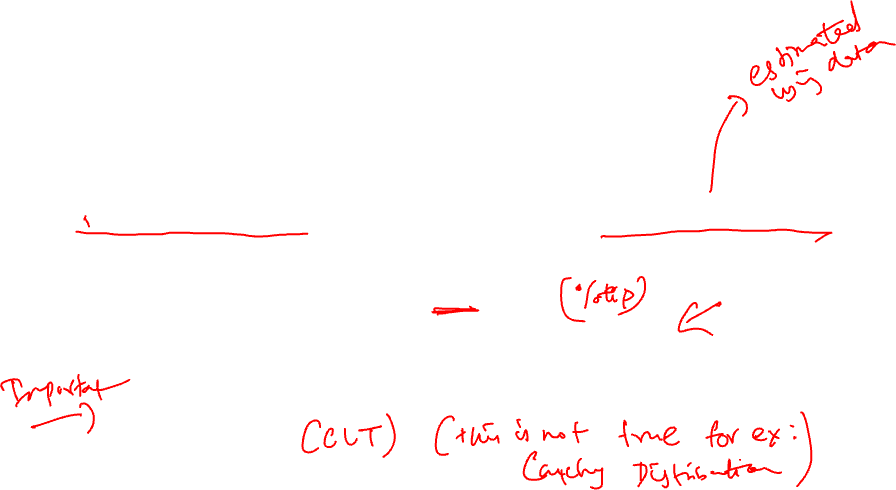 estimated
using data
(%tip)
Important
(CLT) (this is not true for ex:
Cauchy Distribution)